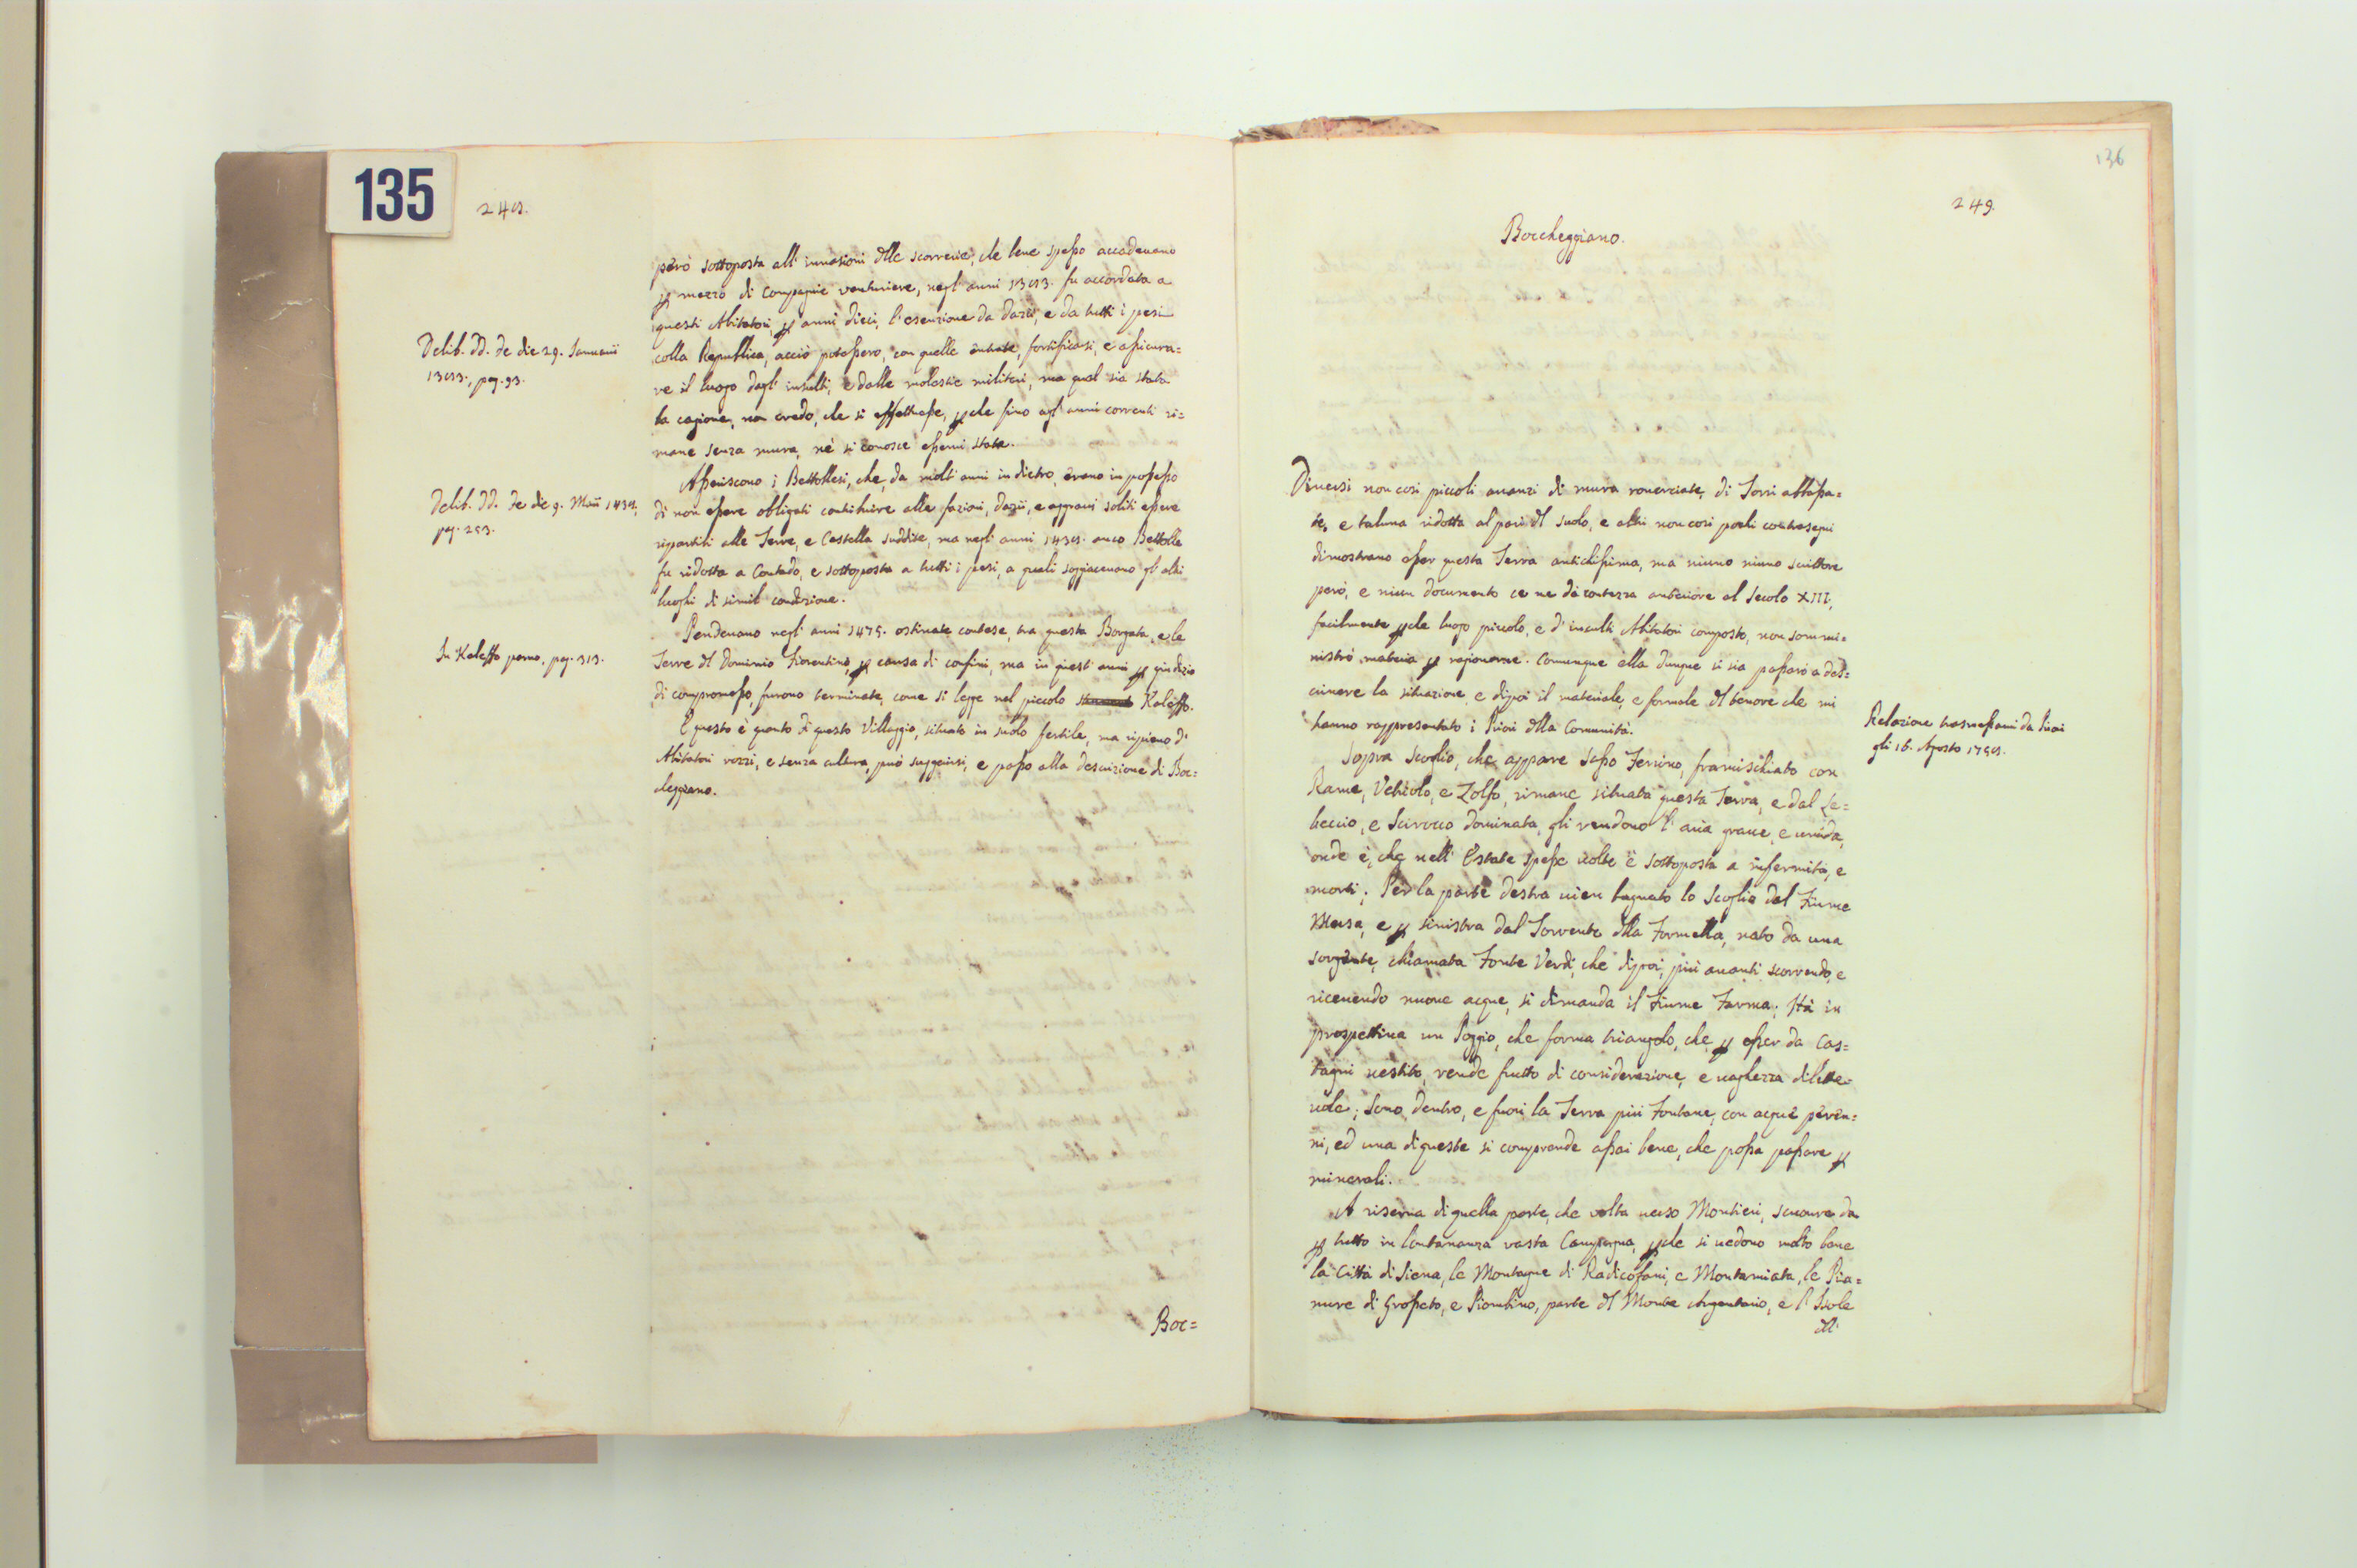 135
248.
però sottoposta all' invasioni dlle scorrerie, che bene spesso accadevano
p mezzo di Compagnie venturiere, negl' anni 1383. fu accordata a
questi Abitatori p anni dieci, l'esenzione da dazii, e da tutti i pesi
colla Republica, acciò potessero, con quelle entrate, fortificarsi, e assicura=
re il luogo dagl' insulti, e dalle molestie militari, ma qual sia stata
la cagione, non credo, che si effettuasse, pche fino agl' anni correnti ri=
mane senza mura, né si conosce esservi state.
Delib. dd. de die 29. Januarii
1383., pag. 93.
Asseriscono i Bettollesi, che, da molti anni in dietro, erano in possesso
di non essere obligati contribuire alle fazioni, dazii, e aggravi soliti essere
ripartiti alle Terre, e Castella suddite, ma negl' anni 1438. anco Bettolle
fu ridotta a Contado, e sottoposta a tutti i pesi, a quali soggiacevano gl' altri
luoghi di simil condizione.
Delib. dd. de die 9. Maii 1438.
pag. 253.
Pendevano negl' anni 1475. ostinate contese, tra questa Borgata, e le
Terre dl Dominio Fiorentino, p causa di confini, ma in questi anni p giudizio
di compromesso, furono terminate, come si legge nel piccolo Kaleffo.
In Kaleffo parvo, pag. 313.
E questo è quanto di questo Villaggio, situato in suolo fertile, ma ripieno d'
Abitatori rozzi, e senza cultura, può suggerirsi, e passo alla descrizione di Boc=
cheggiano.
Boc=
136
249.
Boccheggiano.
Diversi non così piccoli avanzi di mura rovesciate, di Torri abbassa=
te, e taluna ridotta al pari dl suolo, e altri non così pochi contrasegni
dimostrano esser questa Terra antichissima, ma niuno niuno scrittore
però, e niun documento ce ne dà contezza anteriore al Secolo XIII,
facilmente pche luogo piccolo, e d' inculti Abitatori composto, non sommi=
nistrò materia p ragionarne. Comunque ella dunque si sia passarò a des=
crivere la situazione, e dipoi il materiale, e formale dl tenore che mi
hanno rappresentato i Priori dlla Comunità.
Relazione trasmessami da Priori
gli 16. Agosto 1758.
Sopra Scoglio, che appare Sasso Ferrino, framischiato con
Rame, Vetriolo, e Zolfo, rimane situata questa Terra, e dal Le=
beccio, e Scirocco dominata, gli rendono l' aria grave, e umida,
onde è, che nell' Estate spesse volte è sottoposta a infermità, e
morti; Per la parte destra vien bagnato lo Scoglio dal Fiume
Merse, e p sinistra dal Torrente dlla Formella, nato da una
sorgente, chiamata Fonte Verdi, che dipoi, più avanti scorrendo, e
ricevendo nuove acque, si dimanda il Fiume Farma; Hà in
prospettiva un Poggio, che forma triangolo, che p esser da Cas=
tagni vestito, rende frutto di considerazione, e vaghezza dilette=
vole; Sono, dentro, e fuori la Terra più Fontane, con acque peren=
ni, ed una di queste si comprende assai bene, che possa passare p
minerali.
A riserva di quella parte, che volta verso Montieri, scuopre da
p tutto in lontananza vasta Campagna, pche si vedono molto bene
la Città di Siena, le Montagne di Radicofani, e Montamiata, le Pia=
nure di Grosseto, e Piombino, parte dl Monte Argentario, e l' Isole
dll'